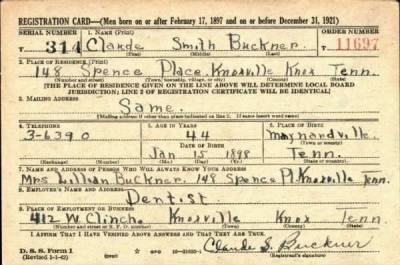 REGISTRATION CARD—(Men born on or after February 17, 1897 and on or before December 31, 1921)
SERIAL NUMBER 1. NAME (Print) ORDER NUMBER
T 314 Claude Smith Buckner 11697
(First) (Middle) (Last)
2. PLACE OF RESIDENCE (Print)
148 Spence Place. Knoxville Knox Tenn.
(Number and street) (Town, township, village, or city) (County) (State)
[THE PLACE OF RESIDENCE GIVEN ON THE LINE ABOVE WILL DETERMINE LOCAL BOARD
JURISDICTION; LINE 2 OF REGISTRATION CERTIFICATE WILL BE IDENTICAL]
3. MAILING ADDRESS
Same.
[Mailing address if other than place indicated on line 2. If same insert word same]
4. TELEPHONE 5. AGE IN YEARS 6. PLACE OF BIRTH
3-6390 44 Maynardville.
DATE OF BIRTH (Town or county)
Jan 15 1898 Tenn.
(Exchange) (Number) (Mo.) (Day) (Yr.) (State or country)
7. NAME AND ADDRESS OF PERSON WHO WILL ALWAYS KNOW YOUR ADDRESS
Mrs Lillian Buckner. 148 Spence Pl. Knoxville Tenn.
8. EMPLOYER'S NAME AND ADDRESS
Dentist.
9. PLACE OF EMPLOYMENT OR BUSINESS
412 W. Clinch. Knoxville Knox Tenn
(Number and street or R. F. D. number) (Town) (County) (State)
I AFFIRM THAT I HAVE VERIFIED ABOVE ANSWERS AND THAT THEY ARE TRUE.
D. S. S. Form 1
(Revised 1-1-42) (over) Claude S. Buckner
(Registrant's signature)